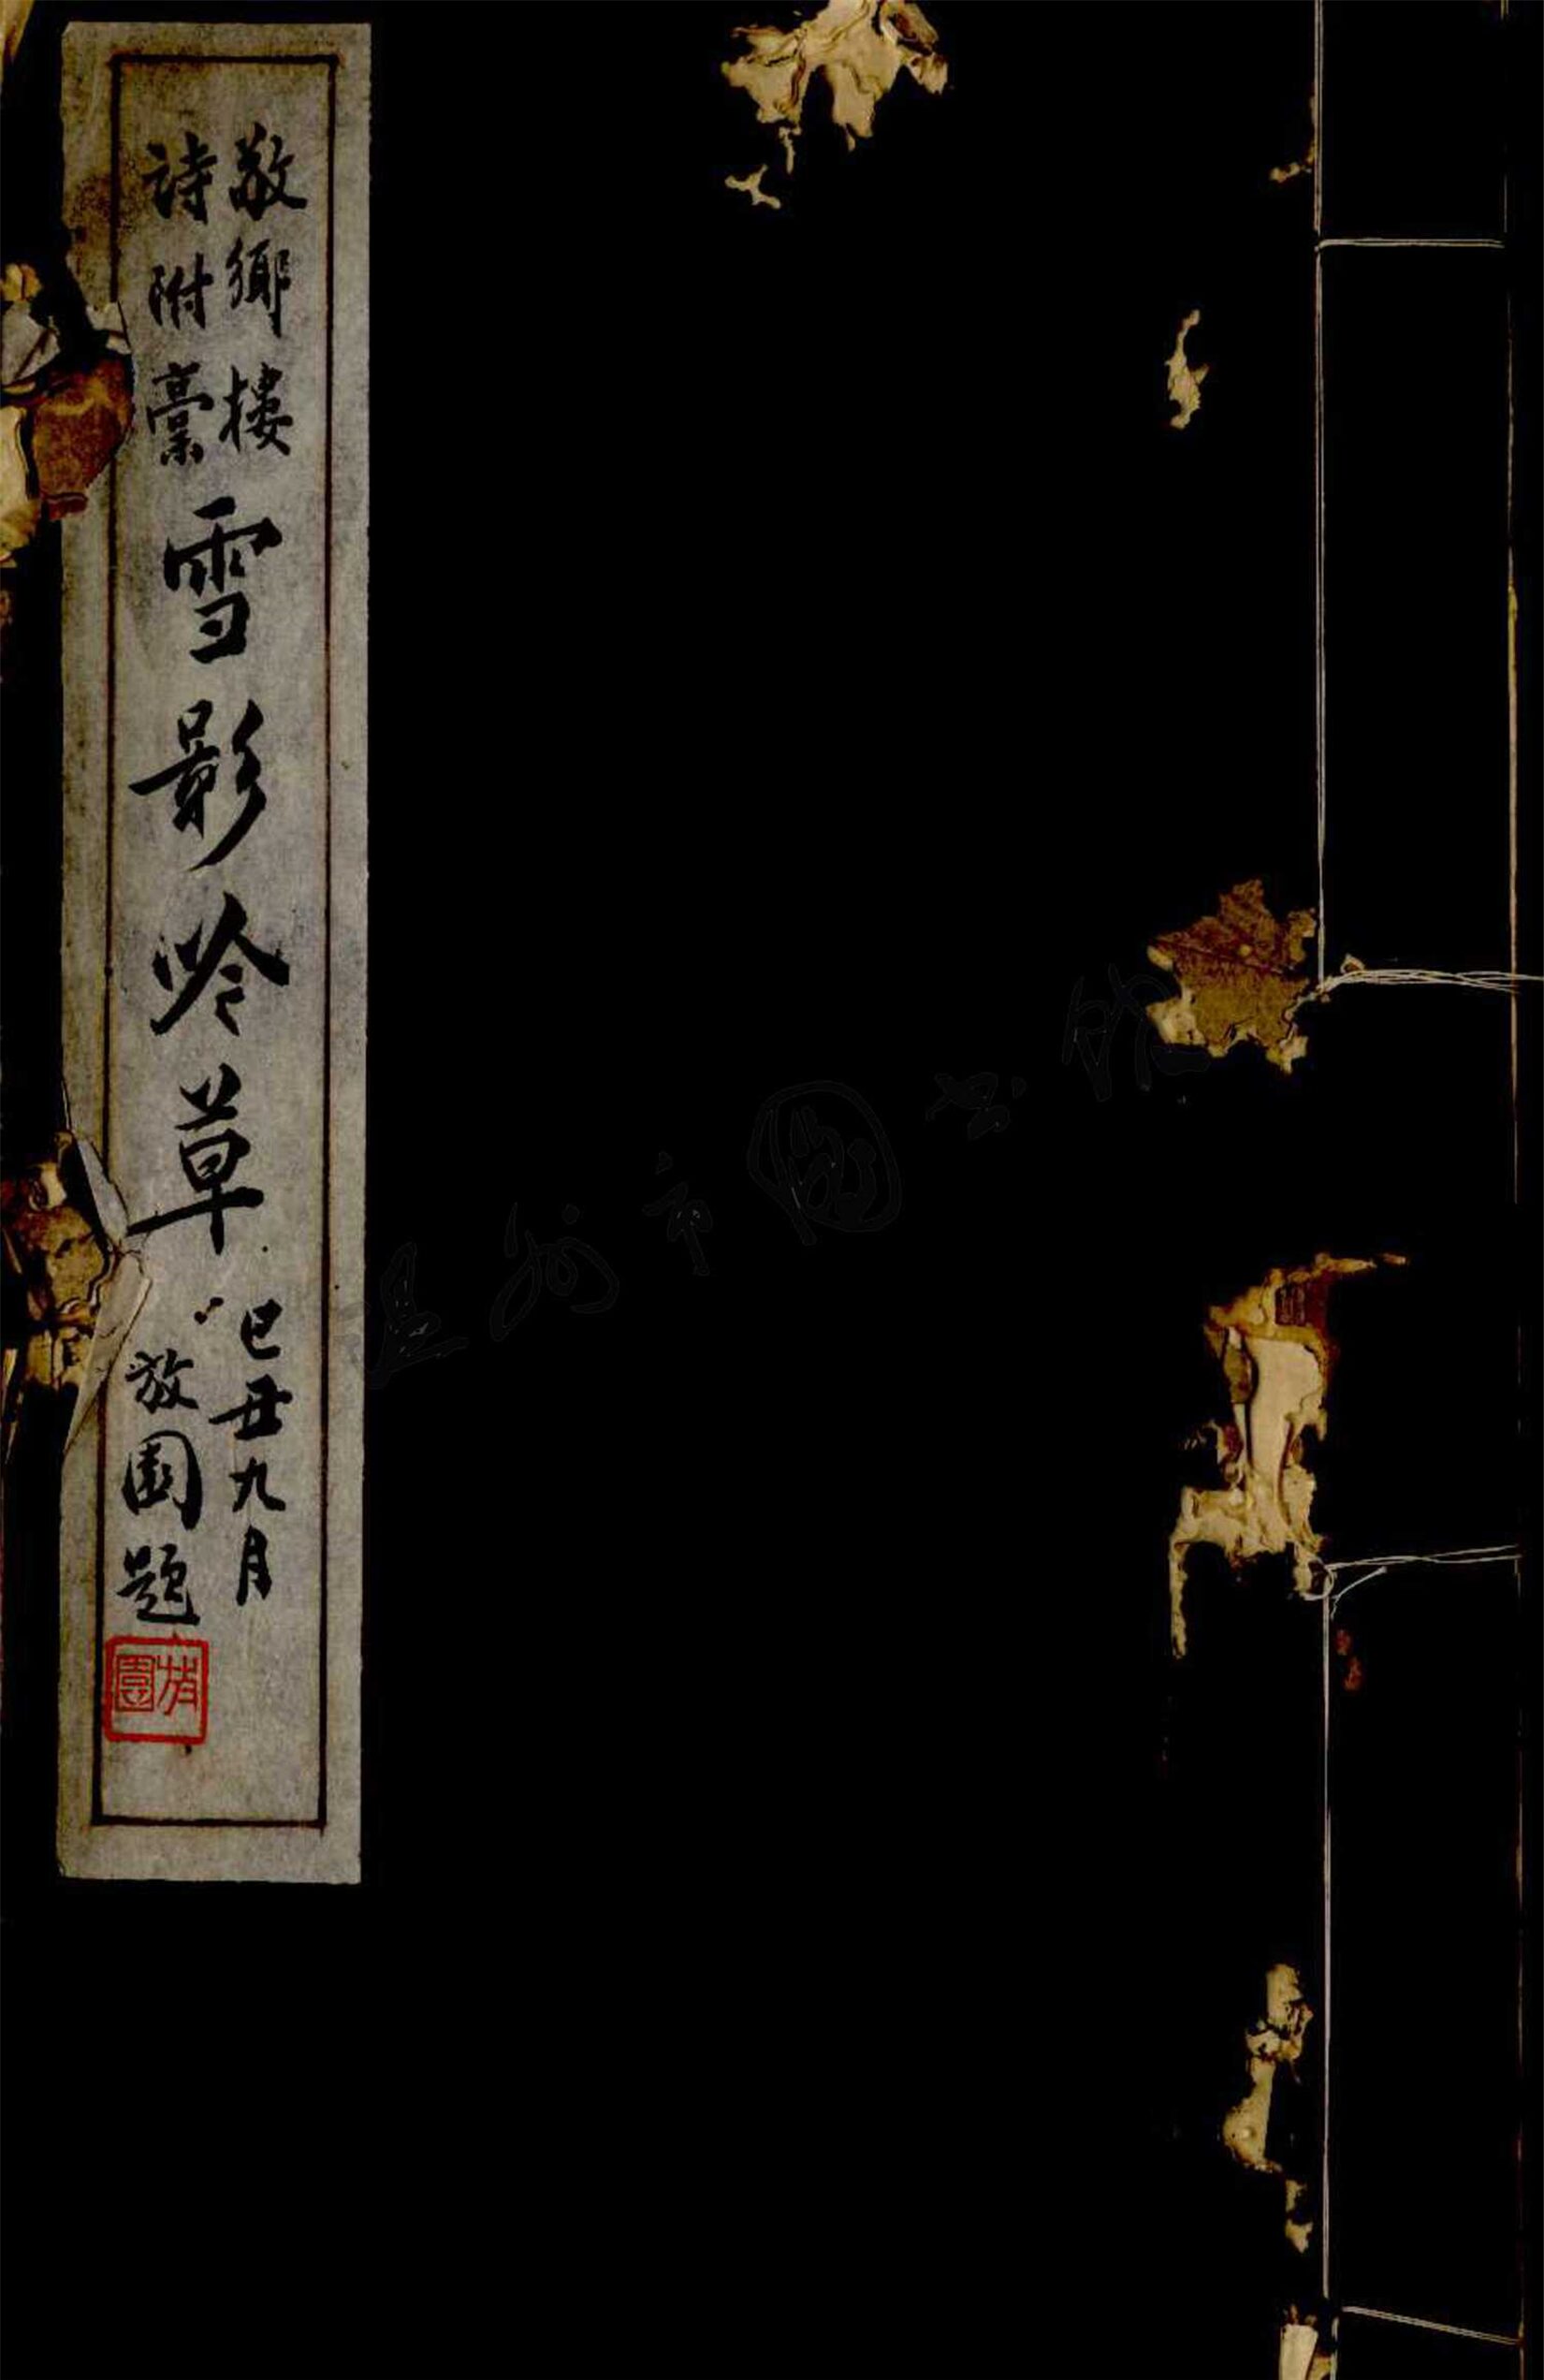 敬鄉樓
詩附稾
雪影吟草
己丑九月
放園題
放園
温州市圖书館